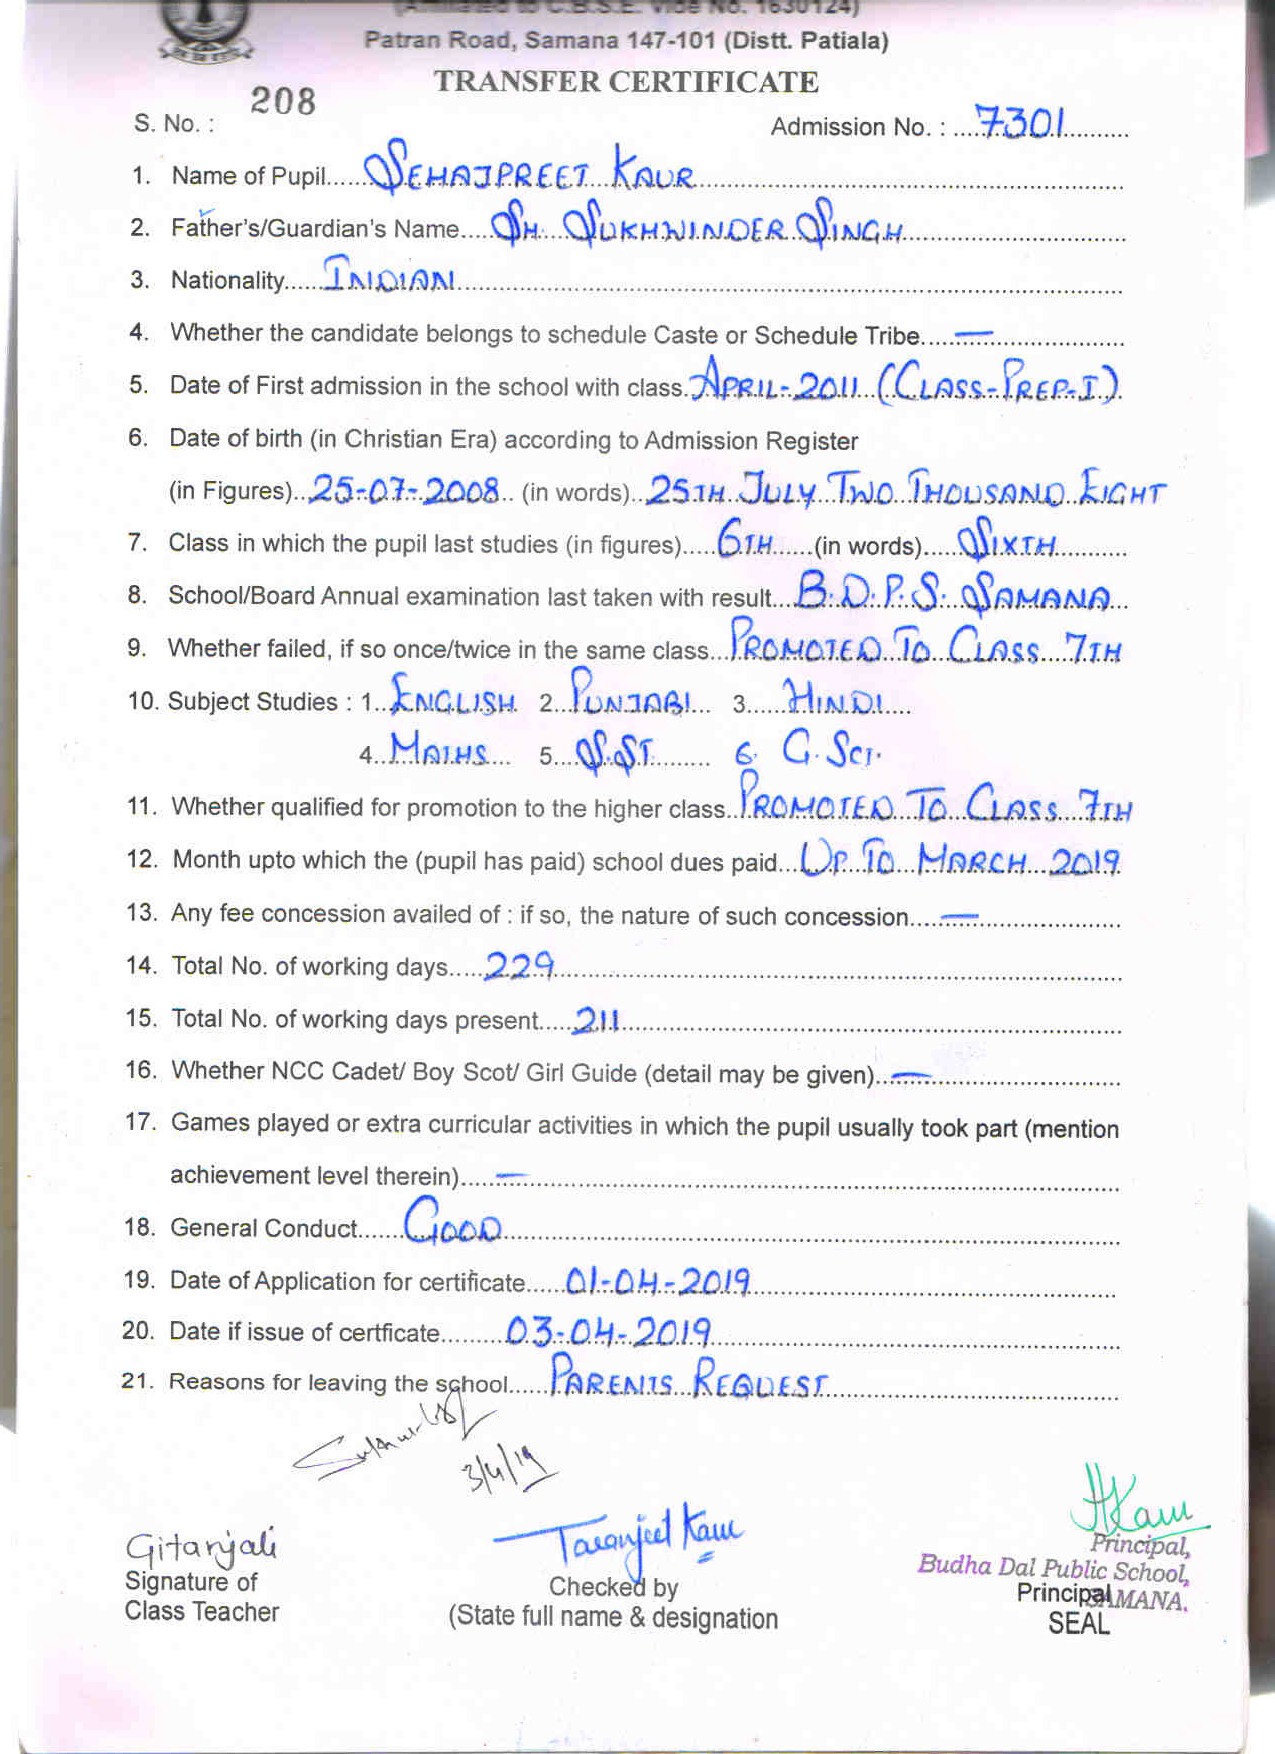 (Affiliated to C.B.S.E. Vide No. 1630124)
Patran Road, Samana 147-101 (Distt. Patiala)
TRANSFER CERTIFICATE
S. No. : 208 Admission No. : 7301
1. Name of Pupil SEHAJPREET KAUR
2. Father's/Guardian's Name SH. SUKHWINDER SINGH
3. Nationality INDIAN
4. Whether the candidate belongs to schedule Caste or Schedule Tribe —
5. Date of First admission in the school with class. APRIL-2011 (CLASS-PREP-I)
6. Date of birth (in Christian Era) according to Admission Register
(in Figures) 25-07-2008 (in words) 25TH JULY TWO THOUSAND EIGHT
7. Class in which the pupil last studies (in figures) 6TH (in words) SIXTH
8. School/Board Annual examination last taken with result B.D.P.S. SAMANA
9. Whether failed, if so once/twice in the same class PROMOTED TO CLASS 7TH
10. Subject Studies : 1. ENGLISH 2. PUNJABI 3. HINDI
4. MATHS 5. S.ST 6. G.SCI.
11. Whether qualified for promotion to the higher class PROMOTED TO CLASS 7TH
12. Month upto which the (pupil has paid) school dues paid UP TO MARCH 2019
13. Any fee concession availed of : if so, the nature of such concession —
14. Total No. of working days 229
15. Total No. of working days present 211
16. Whether NCC Cadet/ Boy Scot/ Girl Guide (detail may be given) —
17. Games played or extra curricular activities in which the pupil usually took part (mention
achievement level therein) —
18. General Conduct GOOD
19. Date of Application for certificate 01-04-2019
20. Date if issue of certficate 03-04-2019
21. Reasons for leaving the school PARENTS REQUEST
3/4/19
Gitanjali Taranjeet Kaur HKaur
Principal,
Budha Dal Public School,
SAMANA.
Signature of Checked by Principal
Class Teacher (State full name & designation SEAL